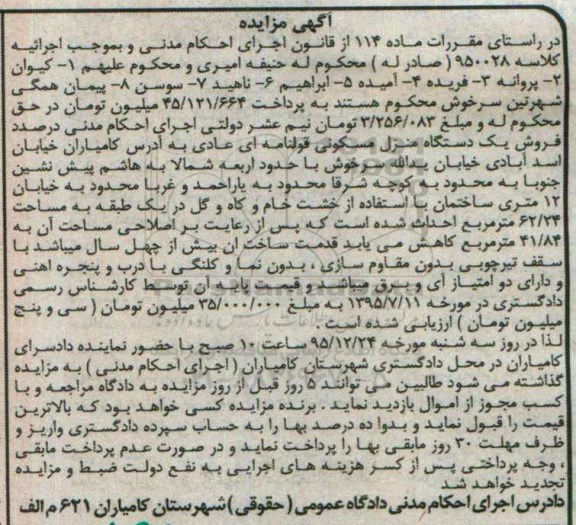 آگهی مزایده
در راستای مقررات ماده ۱۱۴ از قانون اجرای احکام مدنی و بموجب اجرائیه
کلاسه ۹۵۰۰۲۸ ( صادر له ) محکوم له حنیفه امیری و محکوم علیهم ۱- کیوان
۲- پروانه ۳- فریده ۴- آمیده ۵- ابراهیم ۶- ناهید ۷- سوسن ۸- پیمان همگی
شهرتین سرخوش محکوم هستند به پرداخت ۴۵/۱۲۱/۶۶۴ میلیون تومان در حق
محکوم له و مبلغ ۳/۲۵۶/۰۸۳ تومان نیم عشر دولتی اجرای احکام مدنی درصدد
فروش یک دستگاه منزل مسکونی قولنامه ای عادی به آدرس کامیاران خیابان
اسد آبادی خیابان یدالله سرخوش با حدود اربعه شمالا به هاشم پیش نشین
جنوبا به محدود به کوچه شرقا محدود به یاراحمد و غربا محدود به خیابان
۱۲ متری ساختمان با استفاده از خشت خام و کاه و گل در یک طبقه به مساحت
۶۲/۲۴ مترمربع احداث شده است که پس از رعایت بر اصلاحی مساحت آن به
۴۱/۸۴ مترمربع کاهش می یابد قدمت ساخت ان بیش از چهل سال میباشد با
سقف تیرچوبی بدون مقاوم سازی ، بدون نما و کلنگی با درب و پنجره اهنی
و دارای دو امتیاز آی و برق میباشد و قیمت پایه آن توسط کارشناس رسمی
دادگستری در مورخه ۱۳۹۵/۷/۱۱ به مبلغ ۳۵/۰۰۰/۰۰۰ میلیون تومان ( سی و پنج
میلیون تومان ) ارزیابی شده است .
لذا در روز سه شنبه مورخه ۹۵/۱۲/۲۴ ساعت ۱۰ صبح با حضور نماینده دادسرای
کامیاران در محل دادگستری شهرستان کامیاران ( اجرای احکام مدنی ) به مزایده
گذاشته می شود طالبین می توانند ۵ روز قبل از روز مزایده به دادگاه مراجعه و با
کسب مجوز از اموال بازدید نماید . برنده مزایده کسی خواهد بود که بالاترین
قیمت را قبول نماید و بدوا ده درصد بها را به حساب سپرده دادگستری واریز و
ظرف مهلت ۳۰ روز مابقی بها را پرداخت نماید و در صورت عدم پرداخت مابقی
، وجه پرداختی پس از کسر هزینه های اجرایی به نفع دولت ضبط و مزایده
تجدید خواهد شد
دادرس اجرای احکام مدنی دادگاه عمومی ( حقوقی ) شهرستان کامیاران ۶۲۱ م الف